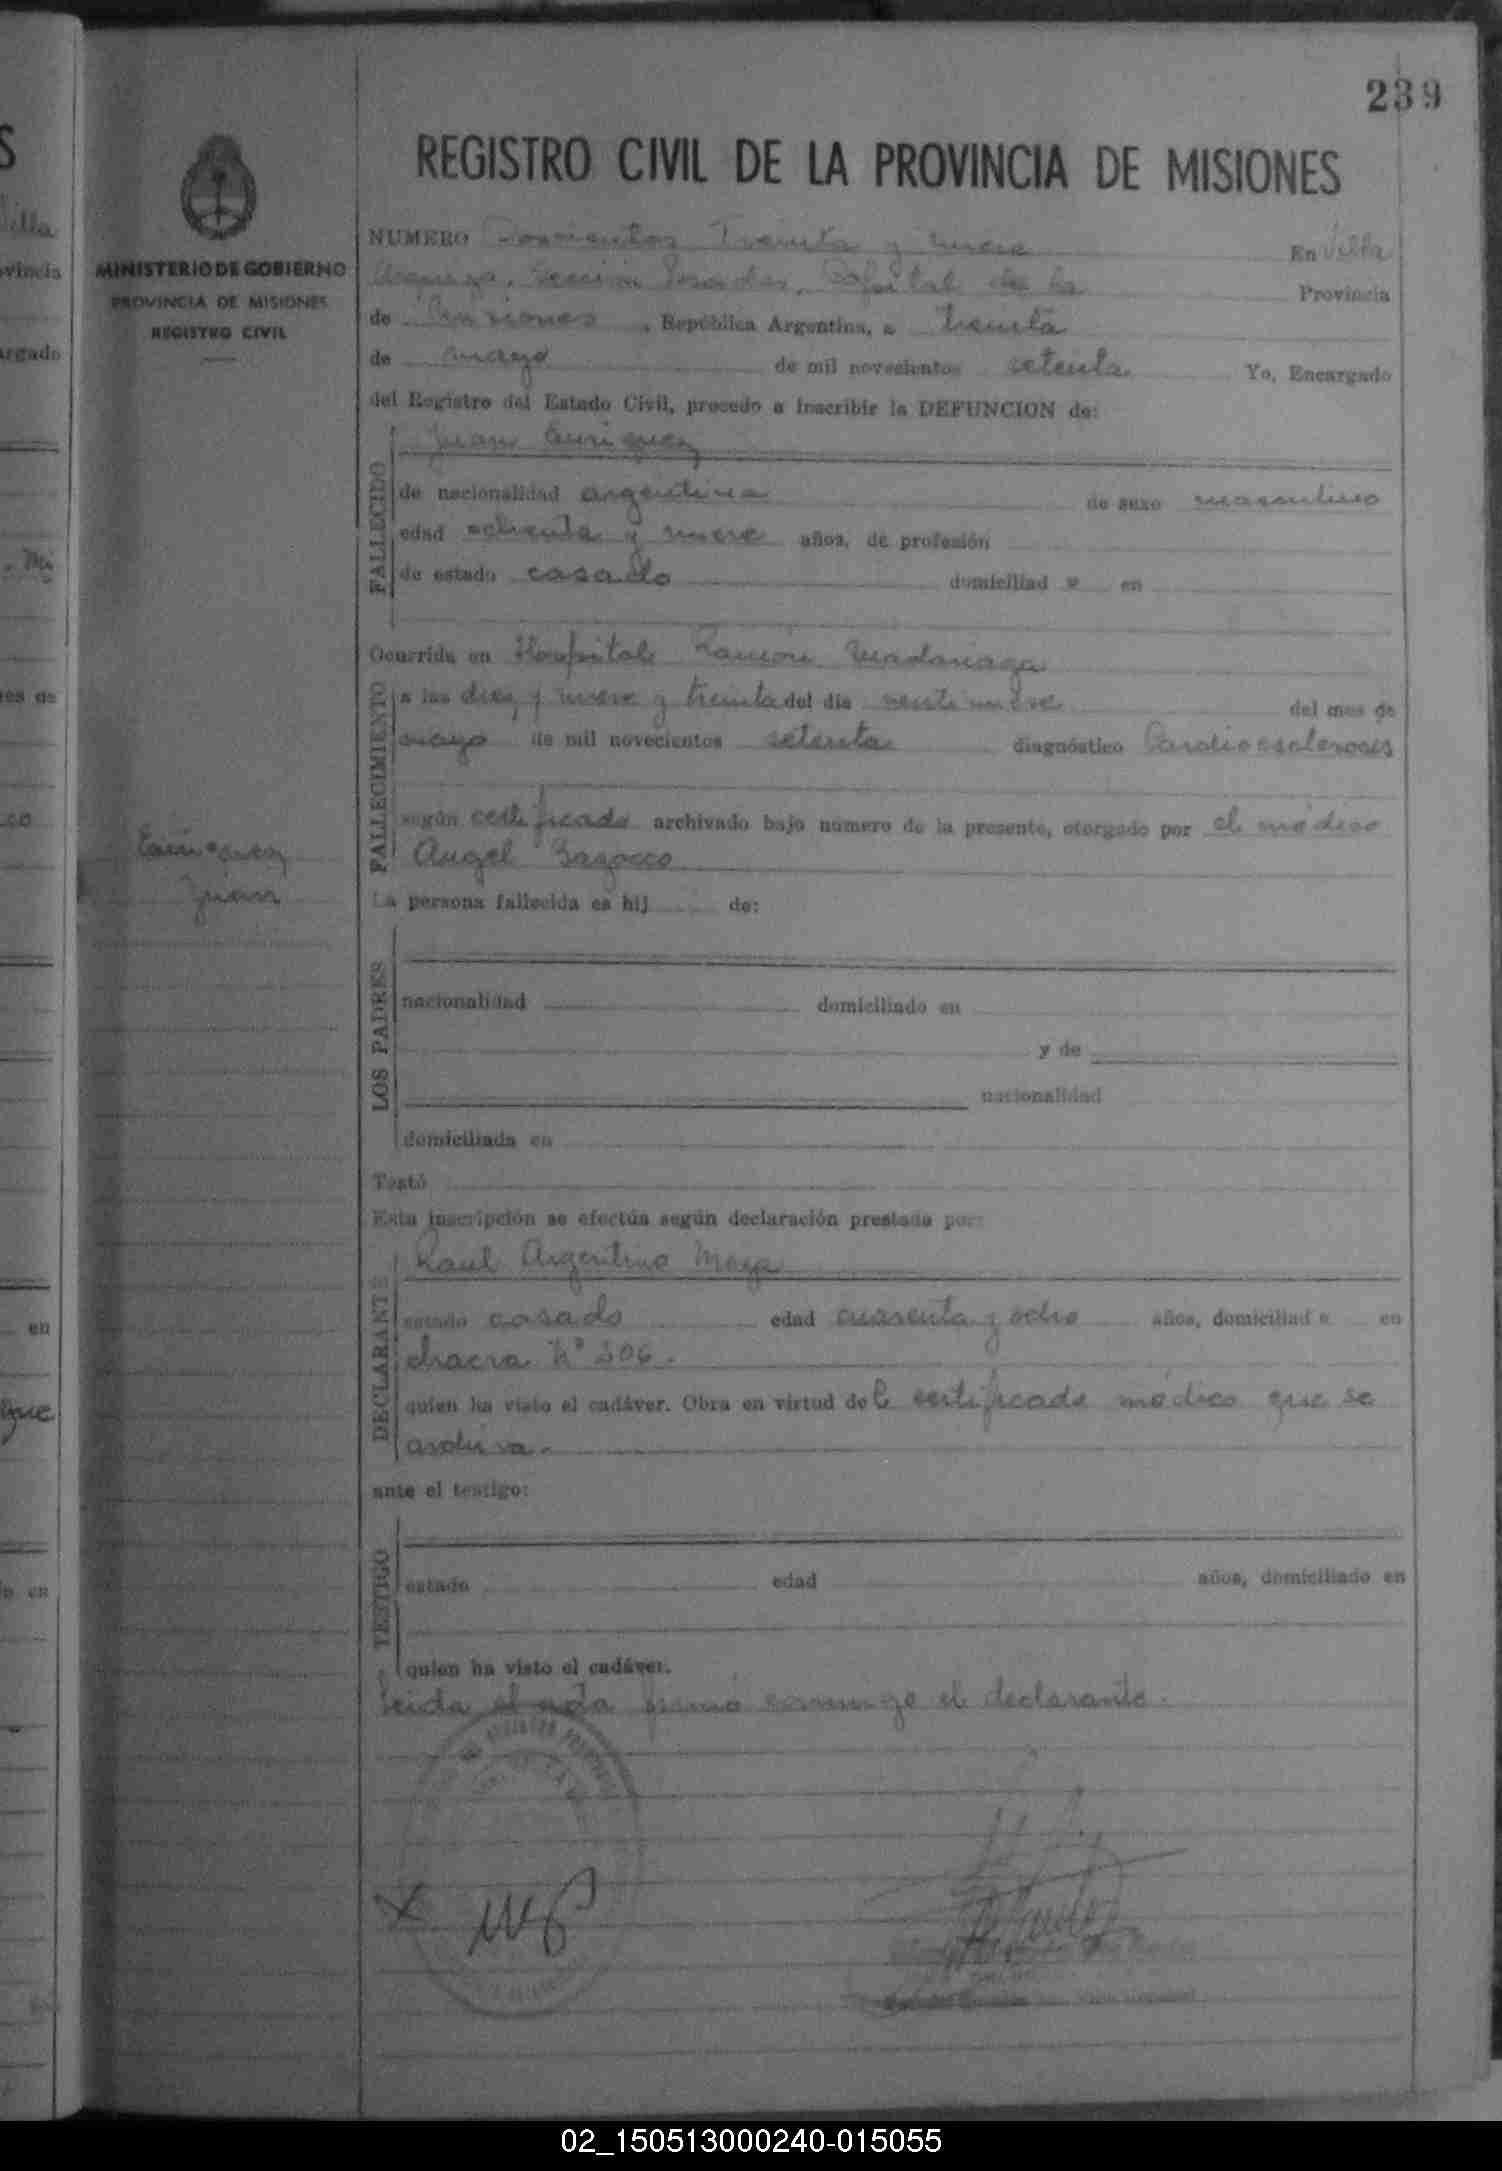 239
REGISTRO CIVIL DE LA PROVINCIA DE MISIONES
MINISTERIO DE GOBIERNO
PROVINCIA DE MISIONES
REGISTRO CIVIL
NUMERO Doscientos Treinta y nueve En Villa
Sección Posadas, Capital de la Provincia
de Misiones, República Argentina, a treinta
de mayo de mil novecientos setenta Yo, Encargado
del Registro del Estado Civil, procedo a inscribir la DEFUNCION de:
FALLECIDO
Juan Enriquez
de nacionalidad argentina de sexo masculino
edad ochenta y nueve años, de profesión
de estado casado domiciliad o en
Ocurrida en Hospital Ramón Madariaga
FALLECIMIENTO
a las diez y nueve y treinta del día veintinueve del mes de
mayo de mil novecientos setenta diagnóstico Cardioesclerosis
según certificado archivado bajo número de la presente, otorgado por el médico
Angel
Enriquez
Juan
La persona fallecida es hij de:
LOS PADRES
nacionalidad domiciliado en
y de
nacionalidad
domiciliada en
Testó
Esta inscripción se efectúa según declaración prestada por:
DECLARANTE
Raul Argentino Moya
estado casado edad cuarenta y ocho años, domiciliad o en
chacra Nº 206.
quien ha visto el cadáver. Obra en virtud del certificado médico que se
archiva.
ante el testigo:
TESTIGO
estado edad años, domiciliado en
quien ha visto el cadáver.
Leida el acta firmó conmigo el declarante.
02_150513000240-015055